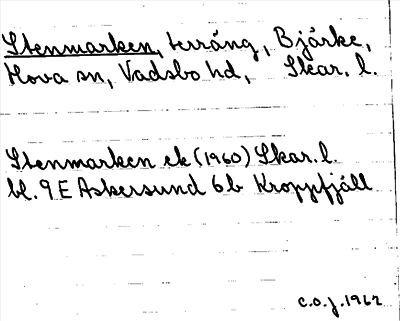 Stenmarken, terräng, Bjärke,
Hova sn, Vadsbo hd, Skar. l.
Stenmarken ek (1960) Skar. l.
bl. 9 E Askersund 6b Kroppfjäll
C.O.J. 1962